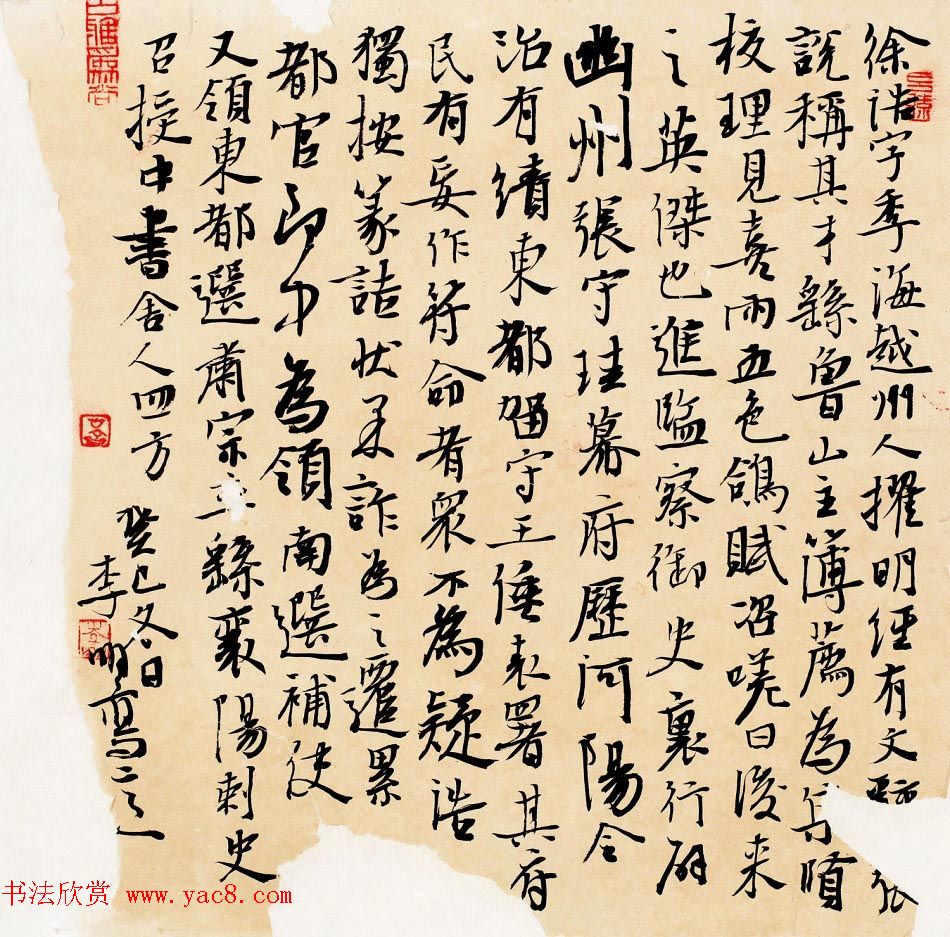 徐浩字季海越州人擢明經有文辭張
說稱其才繇魯山主簿薦為集賢
校理見喜雨五色鴿賦咨嗟曰後来
之英傑也進監察御史裏行辟
幽州張守珪幕府歷河陽令
治有績東都留守王倕表署其府
民有妄作符命者眾不為疑浩
獨按篆詰狀果詐為之遷累
都官郎中為領南選補使
又領東都選肅宗立繇襄陽刺史
召授中書舍人四方
癸巳冬日
李明寫之
书法欣赏 www.yac8.com